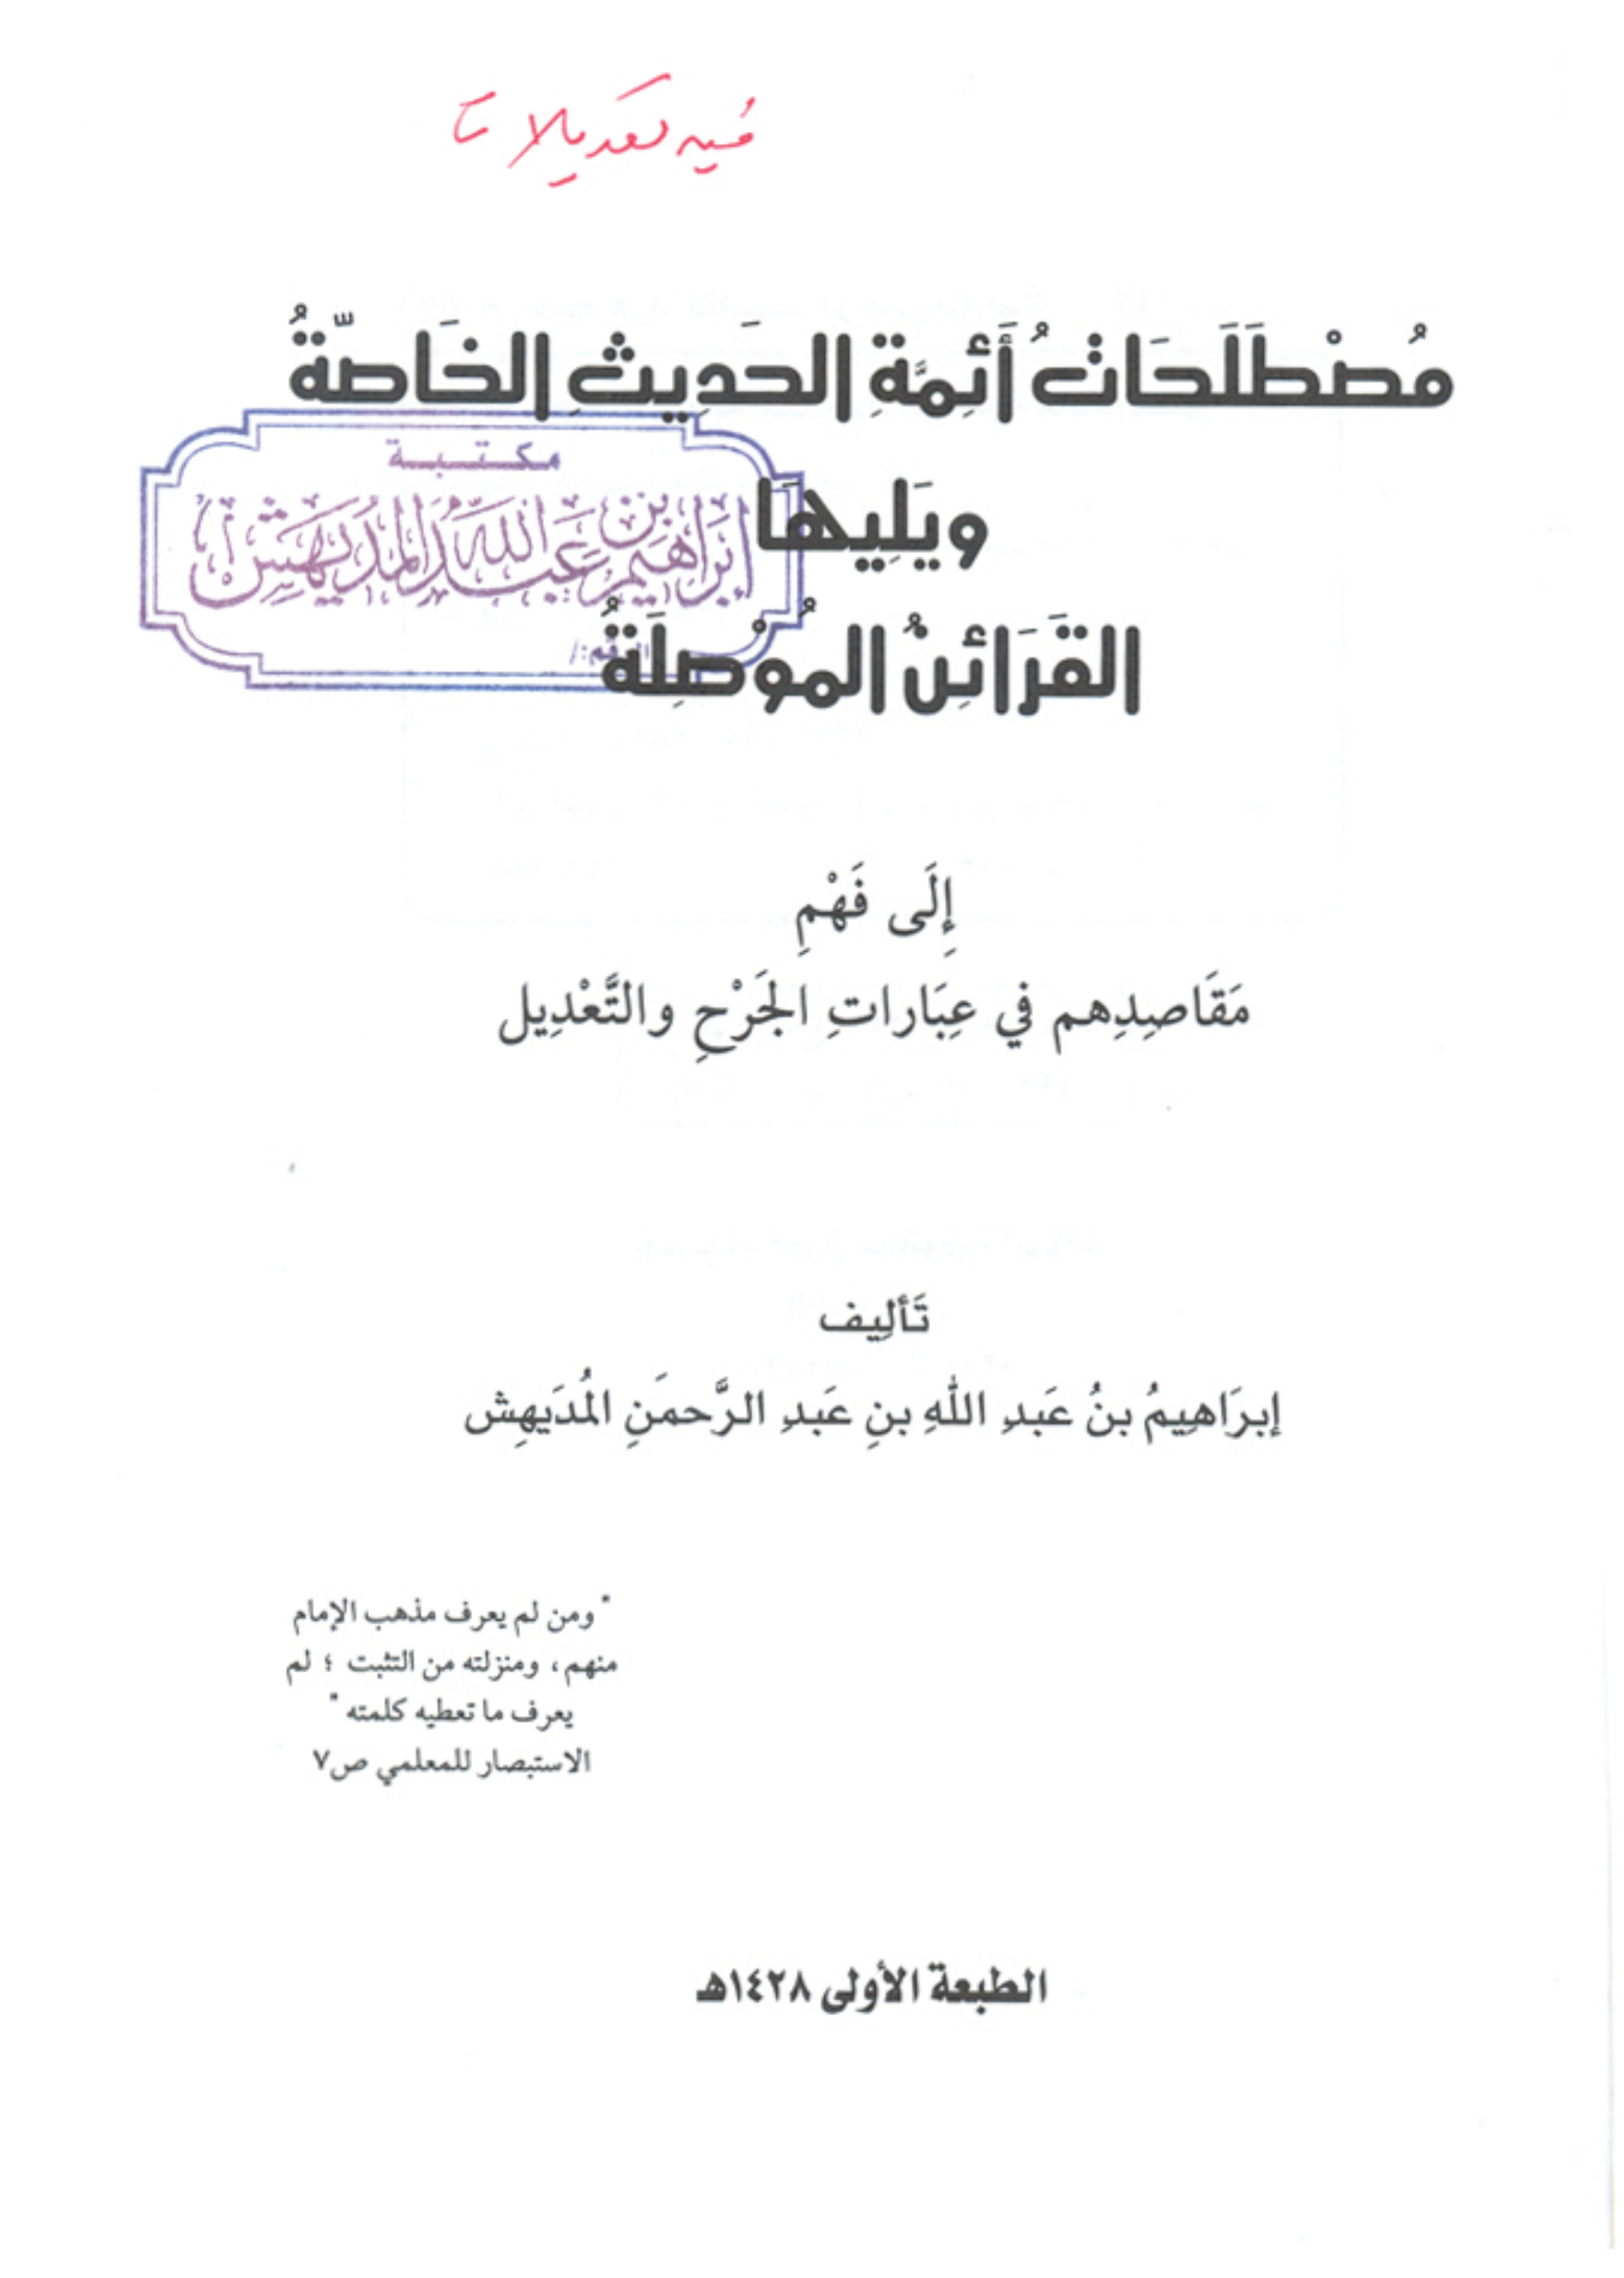 فيه تعديلات
مُصْطَلَحَاتُ أَئِمَّةِ الحَدِيثِ الخَاصَّةُ
مكتبة
ويَلِيهَا
إبراهيم بن عبد الله المديهش
القَرَائِنُ المُوْصِلَةُ
الرقم:/
إِلَى فَهْمِ
مَقَاصِدِهِم في عِبَارَاتِ الجَرْحِ والتَّعْدِيل
تَأْلِيف
إبرَاهِيمُ بنُ عَبدِ اللهِ بنِ عَبدِ الرَّحمَنِ المُدَيهِش
" ومن لم يعرف مذهب الإمام
منهم ، ومنزلته من التثبت ؛ لم
يعرف ما تعطيه كلمته "
الاستبصار للمعلمي ص٧
الطبعة الأولى ١٤٢٨هـ